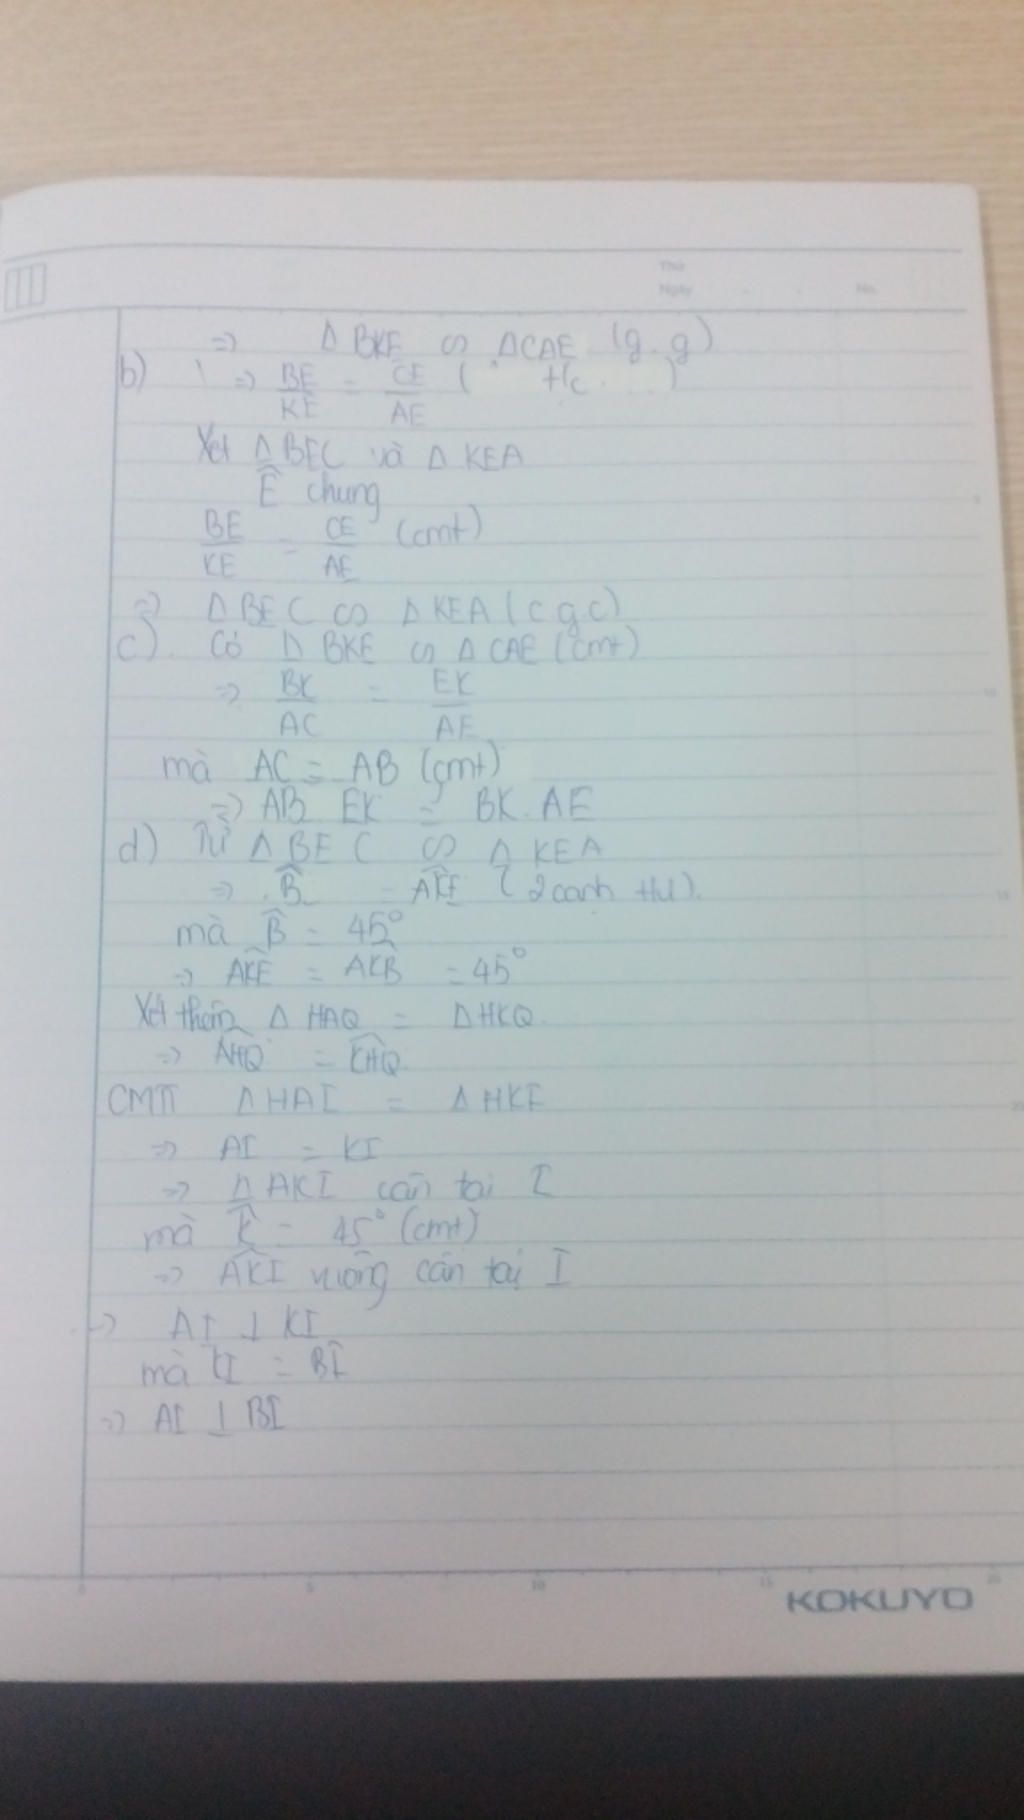 Thứ
Ngày . . No.
=> Δ BKE ∽ ΔCAE (g.g)
b) => BE/KE = CE/AE (
Xét Δ BEC và Δ KEA
Ê chung
BE/KE = CE/AE (cmt)
=> Δ BEC ∽ Δ KEA (c.g.c)
c). Có Δ BKE ∽ Δ CAE (cmt)
=> BK/AC = EK/AE
mà AC = AB (cmt)
=> AB EK = BK. AE
d) Từ Δ BEC ∽ Δ KEA
=> B̂ = AKE
mà B̂ = 45°
=> AKE = AKB = 45°
Xét thêm Δ HAQ = Δ HKQ
=> AHQ = KHQ
CMTT Δ HAI = Δ HKI
=> AI = KI
=> Δ AKI cân tại I
mà K̂ = 45° (cmt)
=> AKI vuông cân tại I
=> AI ⊥ KI
mà KI = BI
=> AI ⊥ BI
0 5 10 15 20
KOKUYO